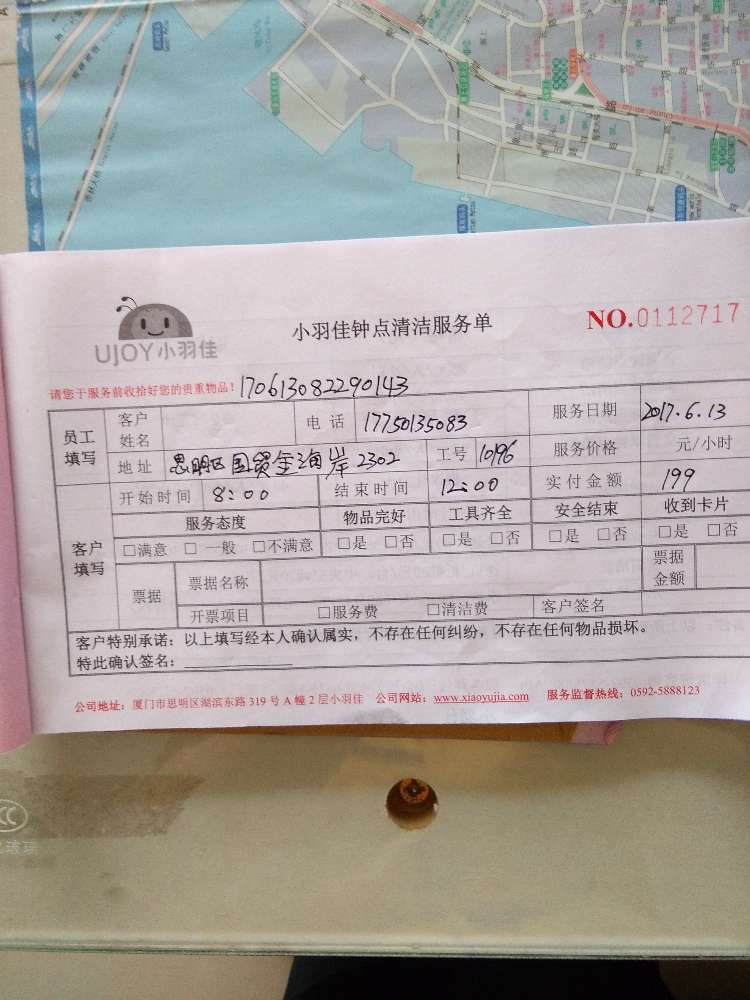 UJOY小羽佳
小羽佳钟点清洁服务单
NO.0112717
请您于服务前收拾好您的贵重物品！170613082290143
员工填写 客户姓名 电话 17750135083 服务日期 2017.6.13
地址 思明区国贸金海岸2302 工号 10196 服务价格 元/小时
客户填写 开始时间 8:00 结束时间 12:00 实付金额 199
服务态度 物品完好 工具齐全 安全结束 收到卡片
□满意 □一般 □不满意 □是 □否 □是 □否 □是 □否 □是 □否
票据 票据名称 票据金额
开票项目 □服务费 □清洁费 客户签名
客户特别承诺：以上填写经本人确认属实，不存在任何纠纷，不存在任何物品损坏。
特此确认签名：
公司地址：厦门市思明区湖滨东路319号A幢2层小羽佳 公司网站：www.xiaoyujia.com 服务监督热线：0592-5888123